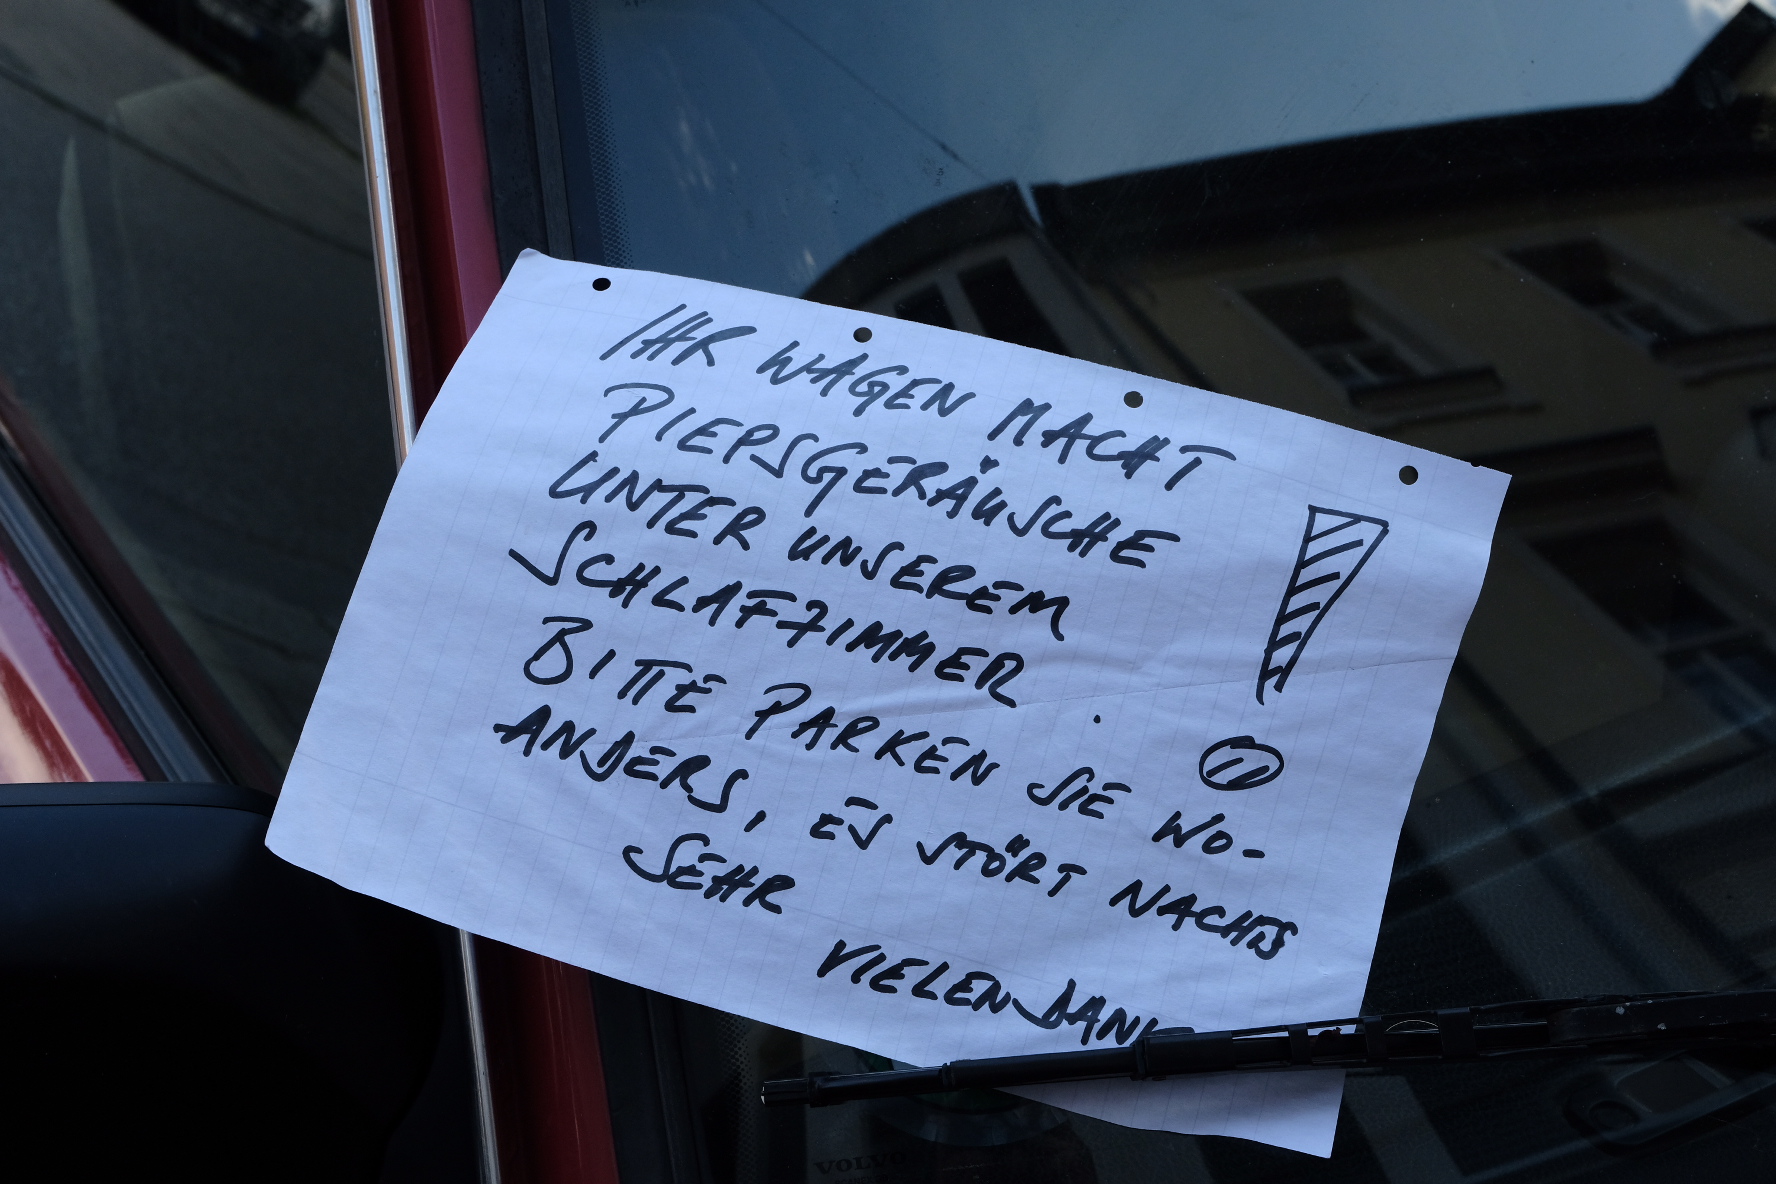 IHR WAGEN MACHT
PIEPSGERÄUSCHE
UNTER UNSEREM
SCHLAFZIMMER.
BITTE PARKEN SIE WO-
ANDERS, ES STÖRT NACHTS
SEHR
VIELEN DANK
!
VOLVO